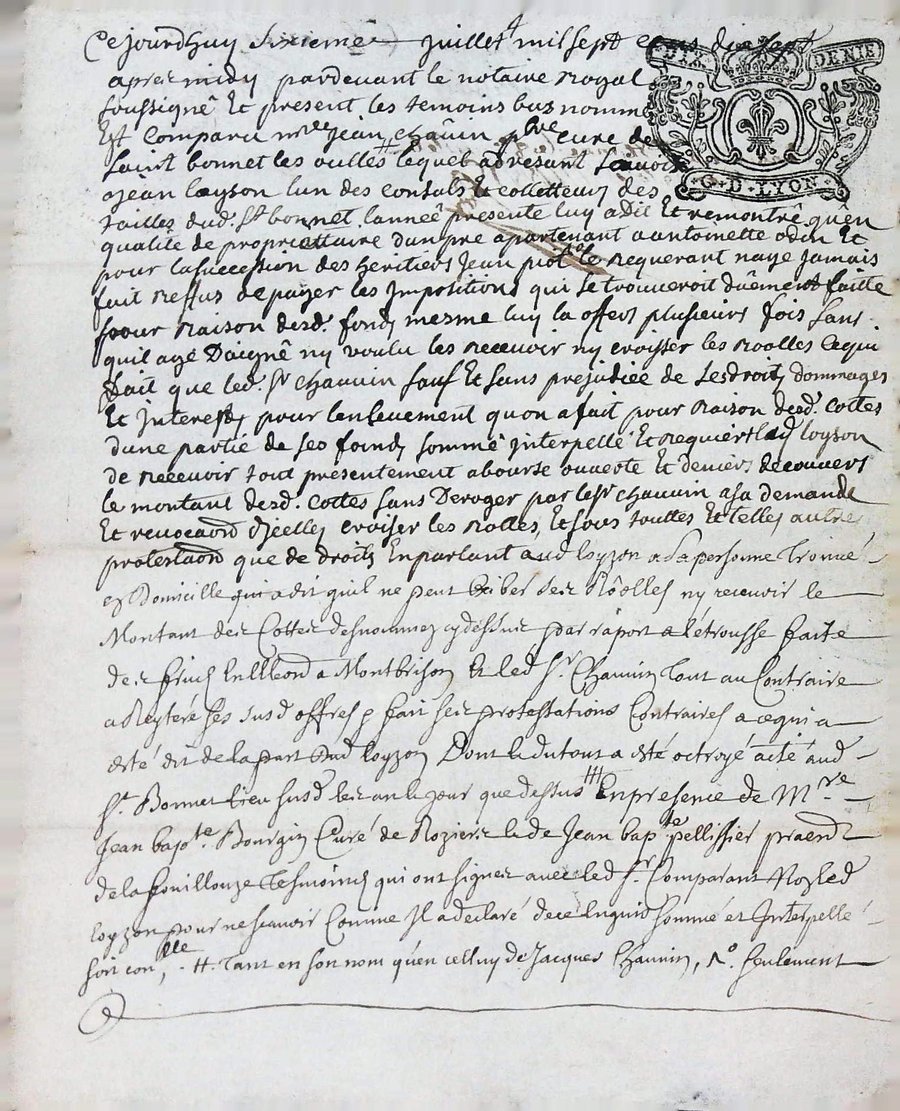 Ce jourdhuy sixieme juillet mil sept cens dix sept
SIX DENIE
apres midy pardevant le notaire royal
soussigné Et present les temoins bas nommé
Est comparu mre jean chauvin pbre curé de
Saint bonnet les oulles # lequel adressant
G·D·LYON
jean loyson lun des consuls Et collecteurs des
tailles dud. St bonnet lanneé presente luy a dit Et remontré quen
qualité de proprietaire dun pré apartenant a antoinette odin Et
pour la succession des heritiers jean le requerant naye jamais
fait reffus de payer les jmpositions qui se trouveroit düement faitte
pour raison desd. fonds mesme luy la offert plusieurs fois sans
quil aye Daigné ny voulu les recevoir ny croisser les roolles Ce qui
fait que led. Sr chauvin sauf Et sans prejudice de ses droits dommages
Et jnterests pour lenlevement quon a fait pour raison desd. cottes
dune partie de ses fonds sommé jnterpellé Et requiert led loyson
de recevoir tout presentement a bourse ouverte Et deniers decouvers
le montant desd. Cottes sans Deroger par le sr chauvin a sa demande
Et revocaon djcelles croiser les rolles, Et sous touttes Et telles autres
protestaon que de droit, En parlant aud loyzon a sa personne trouvé
Domicille qui a dit quil ne peut Exiber ses Rôolles ny recevoir le
Montant des Cottes desnommez cy dessus par raport a létrousse faite
des fruicts a Montbrison Et led Sr Chauvin Tout au Contraire
a Reyteré ses susd offres p fait ses protestations Contraires a ce qui a
esté dit de la part dud loyzon Dont du tout a esté octroyé acte aud
St Bonnet lieu susd les an le jour que dessus ### En presence de Mre
Jean bapte. Bourgin Curé de Rozier le de Jean bapte pellissier
de la fouillouze Tesmoins qui ont signez avec led Sr. Comparant Non led
loyzon pour ne scavoir Comme Jl a declaré de ce Enquis sommé et Jnterpellé
soit con, lle . # Tant en son nom quen celluy de Jacques Chauvin, seulement